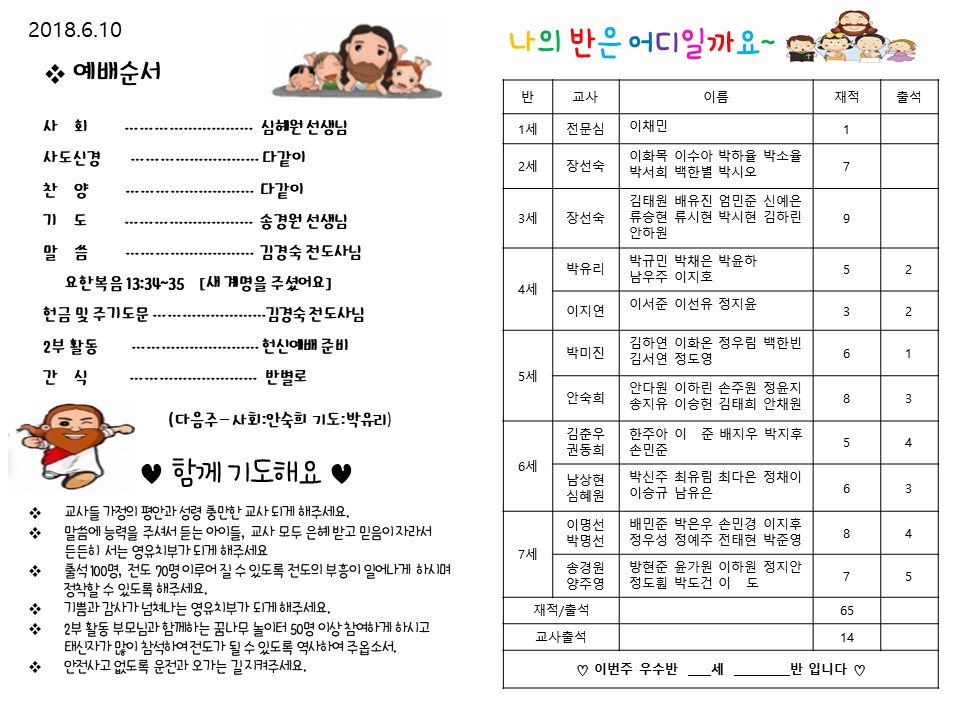 2018.6.10
❖ 예배순서
사 회 --------------------------- 심혜원 선생님
사도신경 --------------------------- 다같이
찬 양 --------------------------- 다같이
기 도 --------------------------- 송경원 선생님
말 씀 --------------------------- 김경숙 전도사님
요한복음 13:34~35 [새 계명을 주셨어요]
헌금 및 주기도문 ------------------------김경숙 전도사님
2부 활동 --------------------------- 헌신예배 준비
간 식 --------------------------- 반별로
(다음주 – 사회:안숙희 기도:박유리)
♥ 함께 기도해요 ♥
❖ 교사들 가정의 평안과 성령 충만한 교사 되게 해주세요.
❖ 말씀에 능력을 주셔서 듣는 아이들, 교사 모두 은혜 받고 믿음이 자라서
든든히 서는 영유치부가 되게 해주세요
❖ 출석 100명, 전도 70명 이루어 질 수 있도록 전도의 부흥이 일어나게 하시며
정착할 수 있도록 해주세요.
❖ 기쁨과 감사가 넘쳐나는 영유치부가 되게 해주세요.
❖ 2부 활동 부모님과 함께하는 꿈나무 놀이터 50명 이상 참여하게 하시고
태신자가 많이 참석하여 전도가 될 수 있도록 역사하여 주옵소서.
❖ 안전사고 없도록 운전과 오가는 길 지켜주세요.
나의 반은 어디일까요~
반 교사 이름 재적 출석
1세 전문심 이채민 1
2세 장선숙 이화목 이수아 박하율 박소율 7
박서희 백한별 박시오
3세 장선숙 김태원 배유진 엄민준 신예은 9
류승현 류시현 박시현 김하린
안하원
4세 박유리 박규민 박채은 박윤하 5 2
남우주 이지호
이지연 이서준 이선유 정지윤 3 2
5세 박미진 김하연 이화온 정우림 백한빈 6 1
김서연 정도영
안숙희 안다원 이하린 손주원 정윤지 8 3
송지유 이승헌 김태희 안채원
6세 김춘우 한주아 이 준 배지우 박지후 5 4
권동희 손민준
남상현 박신주 최유림 최다은 정채이 6 3
심혜원 이승규 남유은
7세 이명선 배민준 박은우 손민경 이지후 8 4
박명선 정우성 정예주 전태현 박준영
송경원 방현준 윤가원 이하원 정지안 7 5
양주영 정도훤 박도건 이 도
재적/출석 65
교사출석 14
♡ 이번주 우수반 ___세 ________반 입니다 ♡